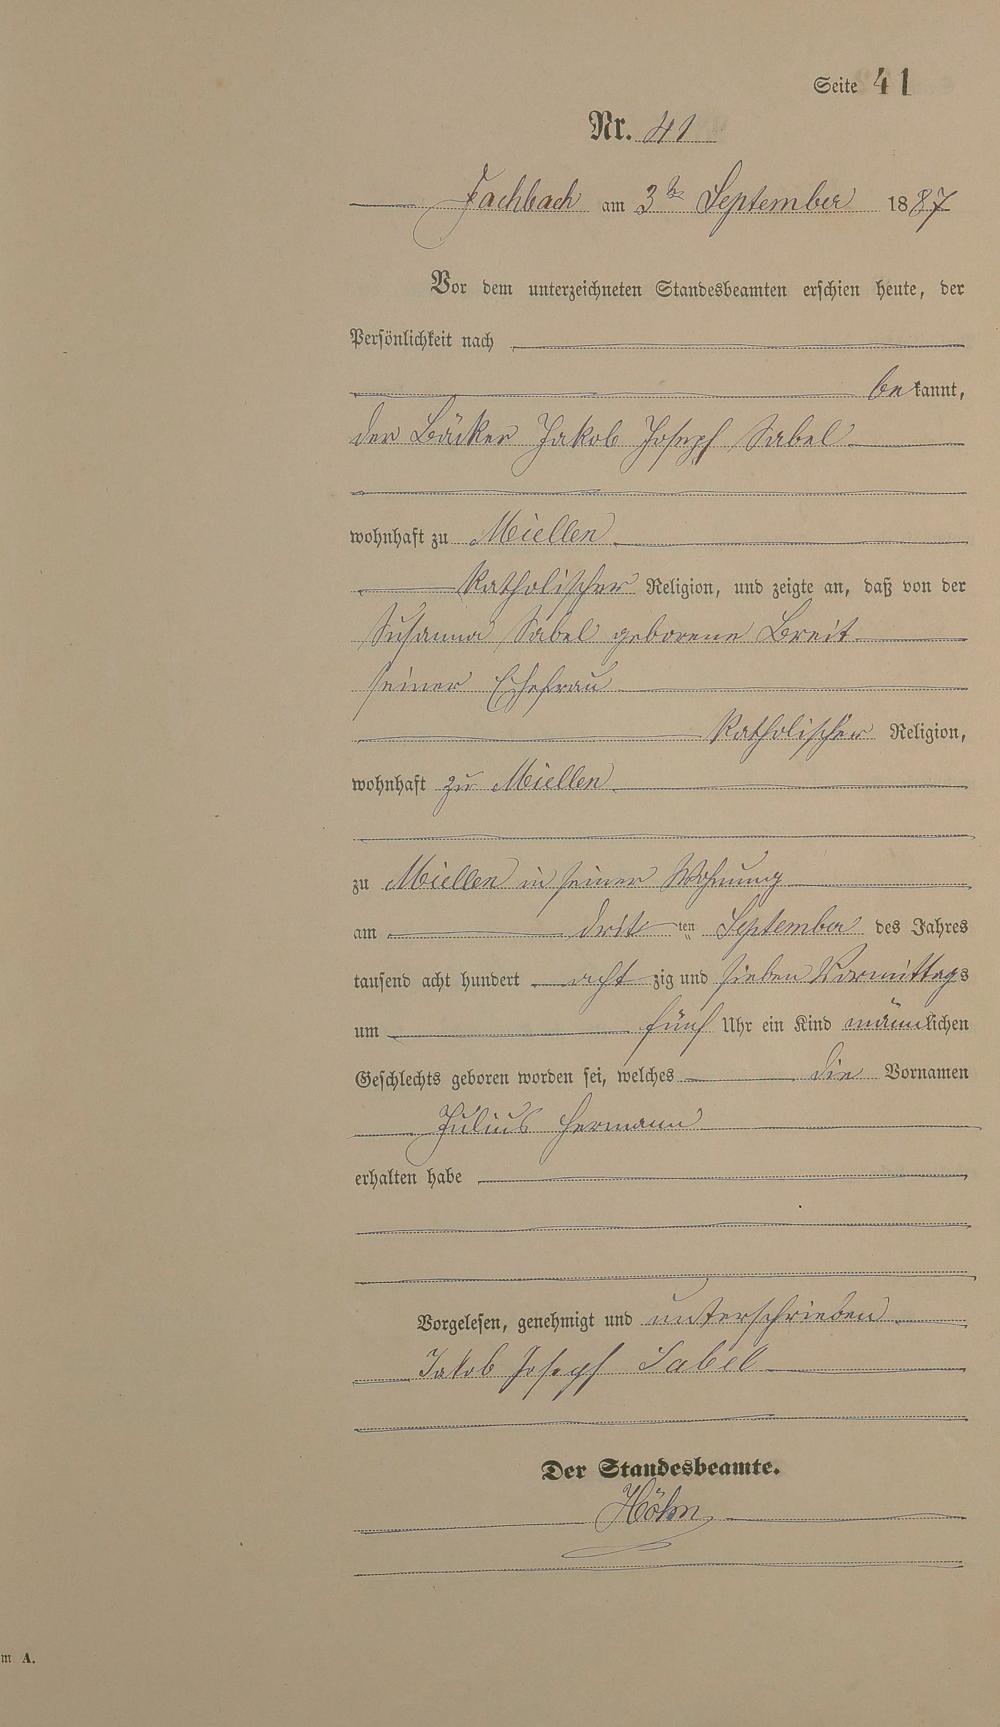 Seite 41
Nr. 41
Fachbach am 3ten September 1887
Vor dem unterzeichneten Standesbeamten erschien heute, der
Persönlichkeit nach
bekannt,
der Bäcker Jakob Joseph Sabel
wohnhaft zu Miellen
katholischer Religion, und zeigte an, daß von der
Susanna Sabel geborene Breit
seiner Ehefrau
katholischer Religion,
wohnhaft zu Miellen
zu Miellen in seiner Wohnung
am dritten September des Jahres
tausend acht hundert achtzig und sieben Vormittags
um fünf Uhr ein Kind männlichen
Geschlechts geboren worden sei, welches die Vornamen
Julius Hermann
erhalten habe
Vorgelesen, genehmigt und unterschrieben
Jakob Joseph Sabel
Der Standesbeamte.
Höhn
m A.